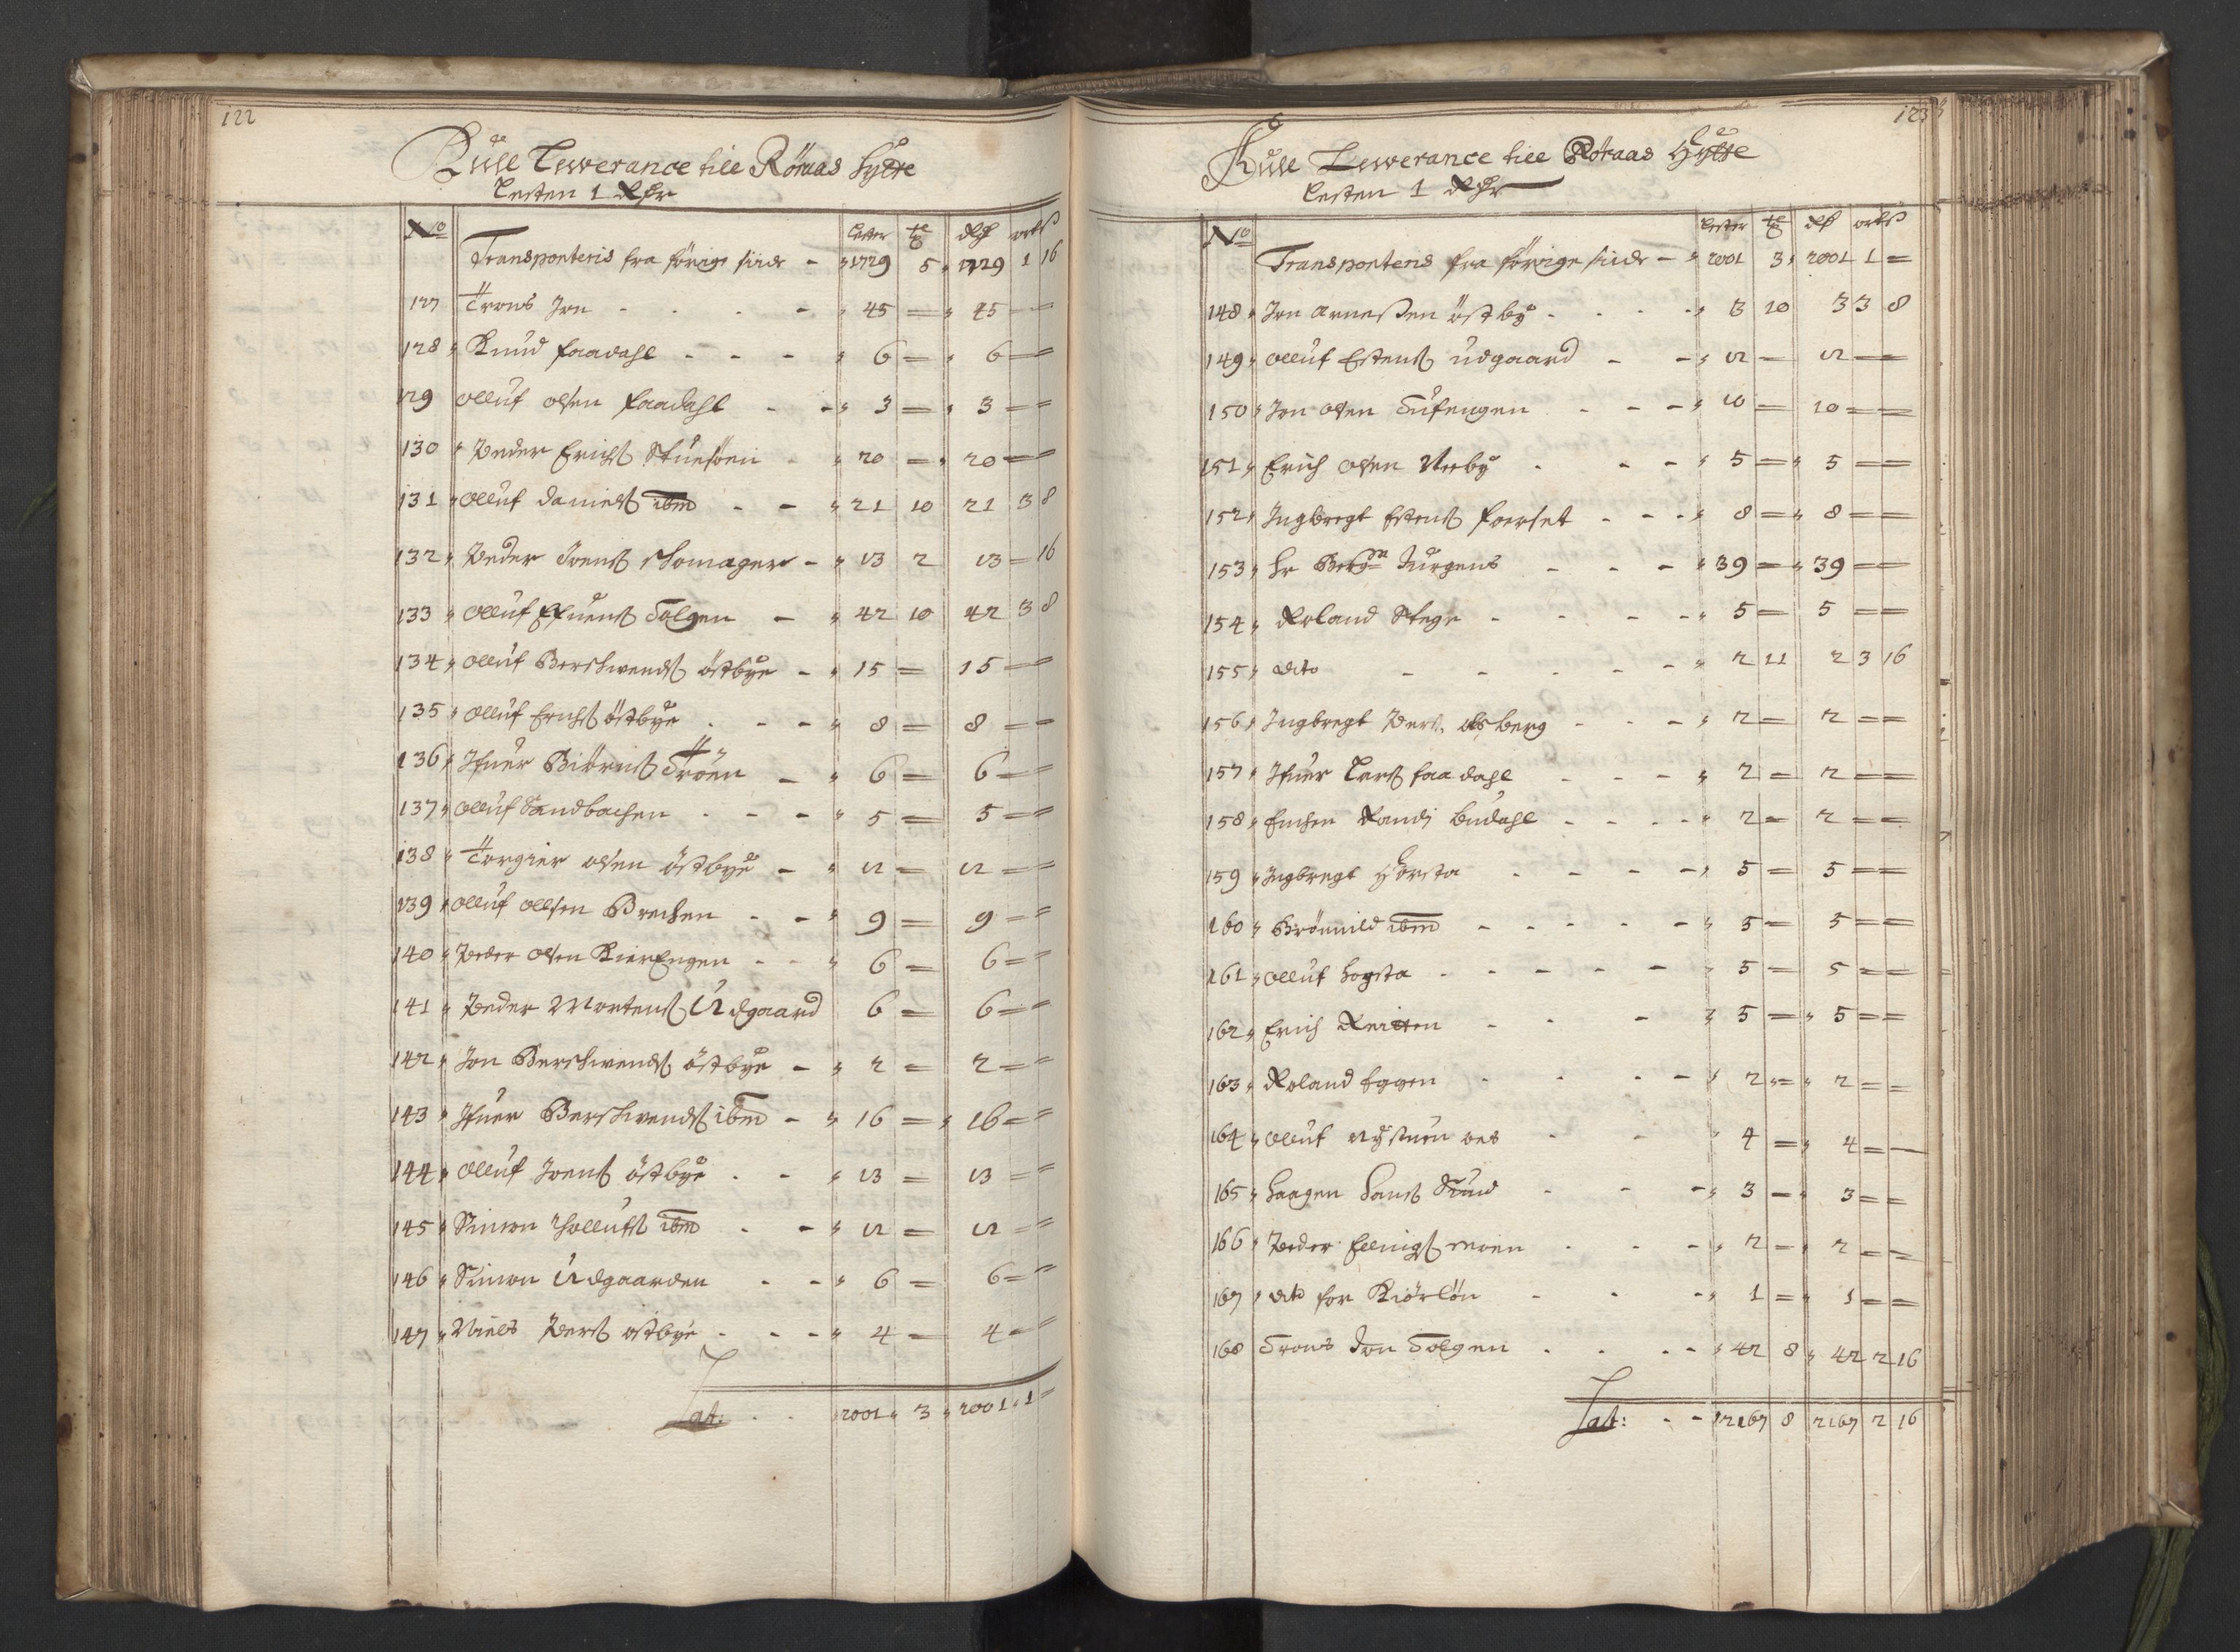 122
Kull Lewerance till Röraas Hytte
Lesten 1 Rdr
No Lester tr Rd ort ß
Transporteris fra förrige siide - 1729 5 1729 1 16
127 Trons Jon - 45 = 45 = =
128 Knud faadahl - 6 = 6 = =
129 olluf olsen faadahl - 3 = 3 = =
130 Peder Erichs Stuesöen - 20 = 20 = =
131 olluf daniels ibm - 21 10 21 3 8
132 Peder Joens schomager - 13 2 13 = 16
133 olluf Efuens Tolgen - 42 10 42 3 8
134 olluf Berschwends östbye - 15 = 15 = =
135 olluf Erichs östbye - 8 = 8 = =
136 Ifuer Biörns Tröen - 6 = 6 = =
137 olluf Sandbachen - 5 = 5 = =
138 Torgier olsen östbye - 12 = 12 = =
139 olluf ollsen Brechen - 9 = 9 = =
140 Peder olsen Kierengen - 6 = 6 = =
141 Peder Mortens Udgaard 6 = 6 = =
142 Jon Berschwends östbye - 2 = 2 = =
143 Ifuer Berschwends ibm - 16 = 16 = =
144 olluf Joens östbye - 13 = 13 = =
145 Simon Thollufs ibm - 12 = 12 = =
146 Simon Udgaarden - 6 = 6 = =
147 Niels Pers östbye - 4 = 4 = =
Lat: 2001 3 2001 1 =
123
Kull Lewerance till Röraas Hytte
Lesten 1 Rdr
No Lester tr Rd ort ß
Transporteris fra förrige siide - 2001 3 2001 1 =
148 Jon Arneßen östby - 3 10 3 3 8
149 olluf Estens udgaard - 12 = 12 = =
150 Jon olsen Tufengen - 10 = 10 = =
151 Erich olsen Neeby - 5 = 5 = =
152 Ingbregt Estens foerset - 8 = 8 = =
153 Hr Jurgens - 39 = 39 = =
154 Roland Stege - 5 = 5 = =
155 dito - 2 11 2 3 16
156 Ingbregt Pers. Alsberg - 2 = 2 = =
157 Ifuer Lars faadahl - 2 = 2 = =
158 Enchen Randj budahl - 2 = 2 = =
159 Ingbregt Horsta - 5 = 5 = =
160 Brönnild ibm - 5 = 5 = =
161 olluf Hogsta - 5 = 5 = =
162 Erich Reitten - 5 = 5 = =
163 Roland Eggen - 2 = 2 = =
164 olluf Nystuen oes - 4 = 4 = =
165 Haagen Hans Sund - 3 = 3 = =
166 Peder Ellings moen - 2 = 2 = =
167 dito for Kiörlön - 1 = 1 = =
168 Trons Jon Tolgen - 42 8 42 2 16
Lat: - 2167 8 2167 2 16